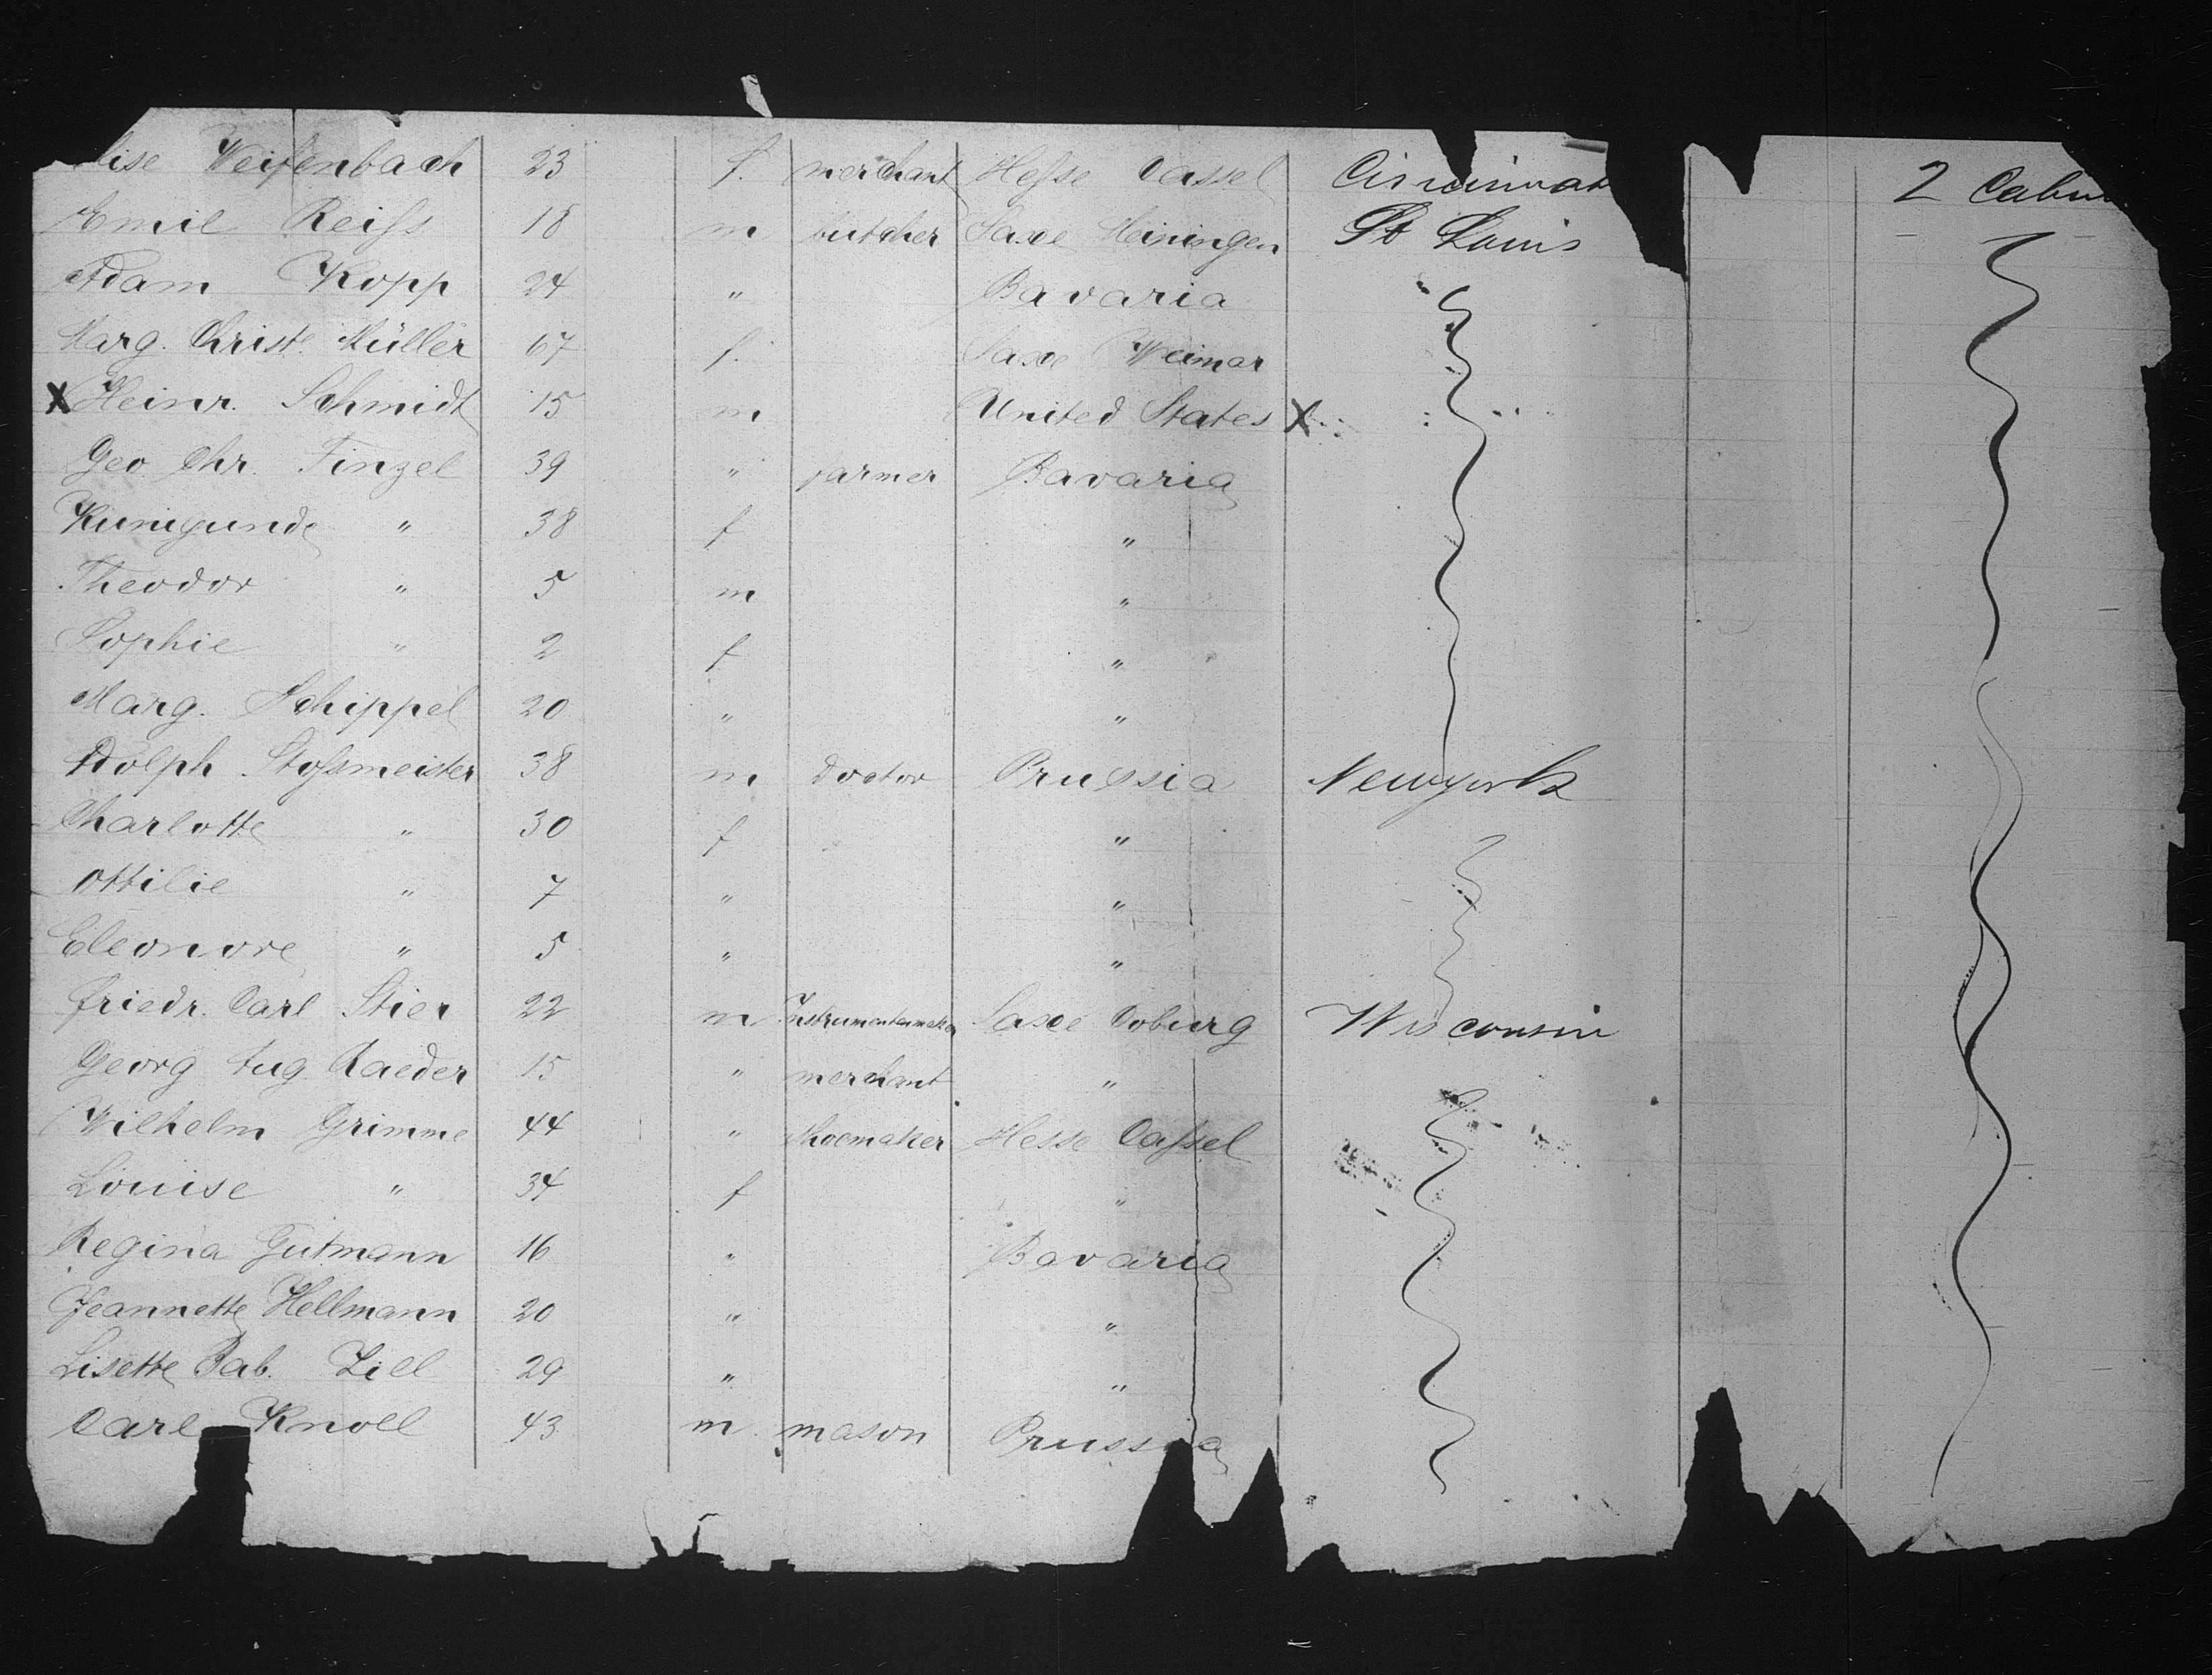 lise Weifenbach 23 f. merchant Hesse Cassel Cincinnat 2 Cabin
Emil Reiſs 18 m butcher Saxe Meiningen St Louis
Adam Kopp 24 " Bavaria
Marg. Christ. Müller 67 f. Saxe Weimar
X Heinr. Schmidt 15 m United States X
Geo Chr. Finzel 39 " farmer Bavaria
Kunigunde " 38 f "
Theodor " 5 m "
Sophie " 2 f "
Marg. Schippel 20 " "
Adolph Stoſsmeister 38 m doctor Prussia Newyork
Charlotte " 30 f "
Ottilie " 7 " "
Eleonore " 5 " "
Friedr. Carl Stier 22 m Instrumentenmaker Saxe Coburg Wisconsin
Georg Aug. Raeder 15 " merchant "
Wilhelm Grimme 44 " shoemaker Hesse Caſsel
Louise " 34 f "
Regina Gutmann 16 " Bavaria
Jeannette Hellmann 20 " "
Lisette Bab. Zill 29 " "
Carl Knoll 43 m. mason Prussia